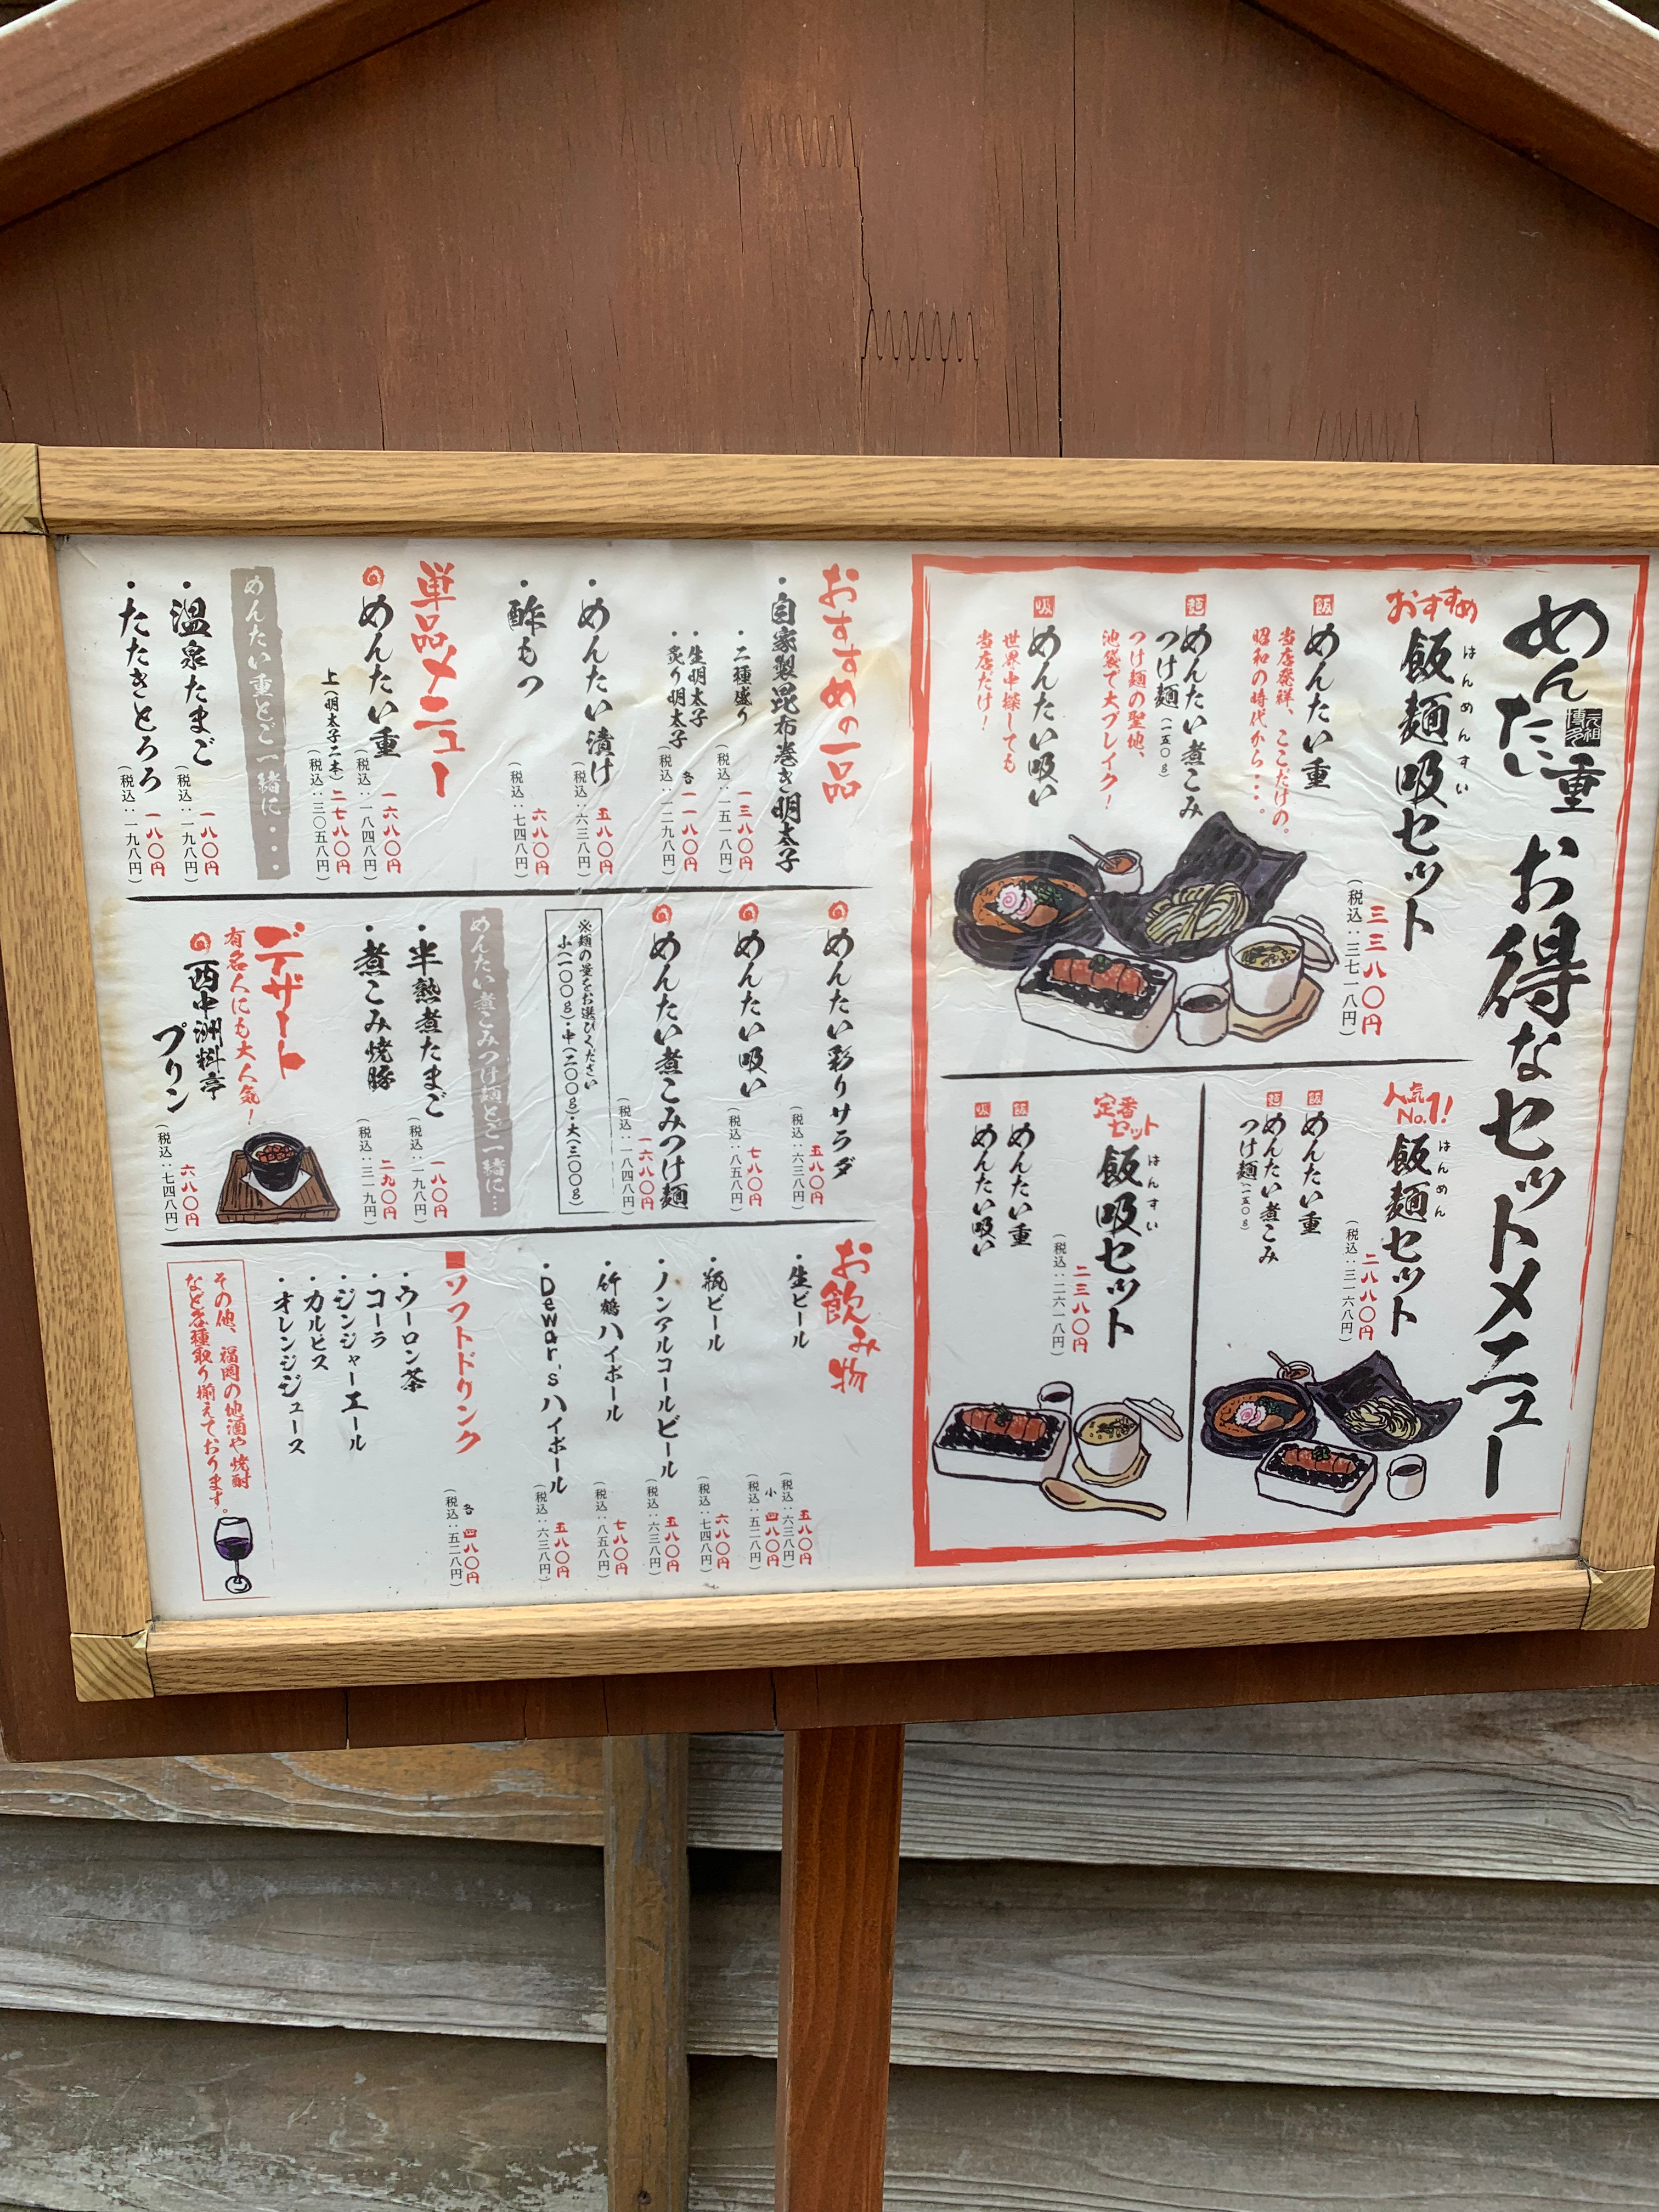 元祖博多
めんたい重 お得なセットメニュー
おすすめ
はんめんすい
飯麺吸セット
三三八〇円
(税込:三七一八円)
飯 めんたい重
当店発祥、ここだけの。
昭和の時代から・・・。
麺 めんたい煮こみ
つけ麺(一五〇g)
つけ麺の聖地、
池袋で大ブレイク!
吸 めんたい吸い
世界中探しても
当店だけ!
人気No.1!
はんめん
飯麺セット
二八八〇円
(税込:三一六八円)
飯 めんたい重
麺 めんたい煮こみ
つけ麺(一五〇g)
定番セット
はんすい
飯吸セット
二三八〇円
(税込:二六一八円)
飯 めんたい重
吸 めんたい吸い
おすすめの一品
・自家製昆布巻き明太子
・二種盛り 一三八〇円
(税込:一五一八円)
・生明太子
・炙り明太子 各 一一八〇円
(税込:一二九八円)
・めんたい漬け 五八〇円
(税込:六三八円)
・酢もつ 六八〇円
(税込:七四八円)
単品メニュー
めんたい重 一六八〇円
(税込:一八四八円)
上(明太子二本) 二七八〇円
(税込:三〇五八円)
めんたい重とご一緒に・・・
・温泉たまご 一八〇円
(税込:一九八円)
・たたきとろろ 一八〇円
(税込:一九八円)
めんたい彩りサラダ 五八〇円
(税込:六三八円)
めんたい吸い 七八〇円
(税込:八五八円)
めんたい煮こみつけ麺 一六八〇円
(税込:一八四八円)
※麺の量をお選びください
小(一〇〇g)・中(二〇〇g)・大(三〇〇g)
めんたい煮こみつけ麺とご一緒に…
・半熟煮たまご 一八〇円
(税込:一九八円)
・煮こみ焼豚 二九〇円
(税込:三一九円)
デザート
有名人にも大人気!
西中洲料亭
プリン 六八〇円
(税込:七四八円)
お飲み物
・生ビール 五八〇円
(税込:六三八円)
小 四八〇円
(税込:五二八円)
・瓶ビール 六八〇円
(税込:七四八円)
・ノンアルコールビール 五八〇円
(税込:六三八円)
・竹鶴ハイボール 七八〇円
(税込:八五八円)
・Dewar's ハイボール 五八〇円
(税込:六三八円)
■ソフトドリンク 各 四八〇円
(税込:五二八円)
・ウーロン茶
・コーラ
・ジンジャーエール
・カルピス
・オレンジジュース
その他、福岡の地酒や焼酎
など各種取り揃えております。